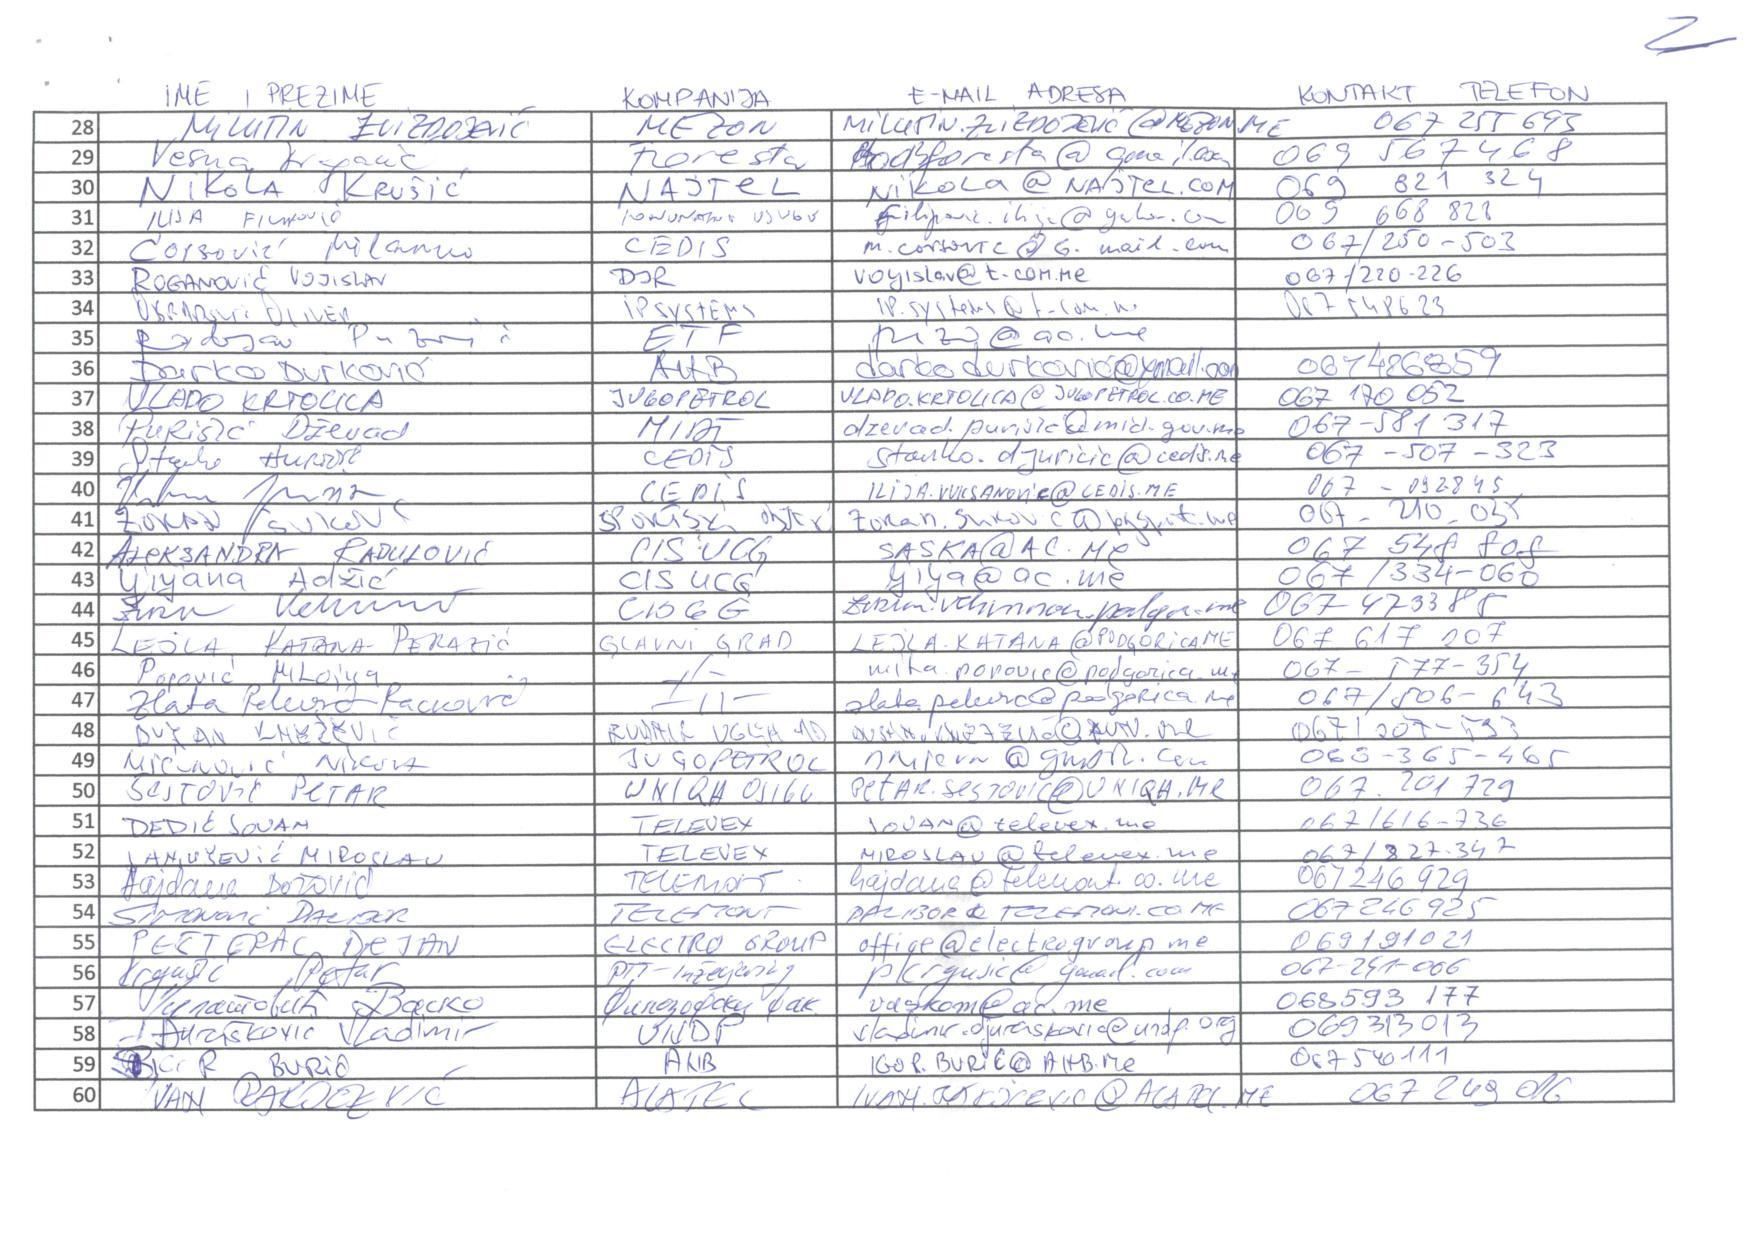 2
IME I PREZIME KOMPANIJA E-MAIL ADRESA KONTAKT TELEFON
28 MILUTIN ZVIZDOJEVIĆ MEZON MILUTIN.ZVIZDOJEVIĆ@MEZON.ME 067 255 693
29 Vesna Foresta @gmail.com 069 567 468
30 NIKOLA KRUŠIĆ NAJTEL NIKOLA@NAJTEL.COM 069 821 324
31 ILIJA 069 668 828
32 Ćorsović Milanko CEDIS 067/250-503
33 ROGANOVIĆ VOJISLAV DJR voyislav@t-com.me 067/220-226
34 OLIVER IP SYSTEMS 067 548623
35 ETF
36 Darko Durković AHB darkodurkovic@gmail.com 067486859
37 VLADO KRTOLICA JUGOPETROL VLADO.KRTOLICA@JUGOPETROL.CO.ME 067 170 052
38 Purišić Dževad dzevad.purisic@mid.gov.me 067-581 317
39 CEDIS stanko.djuricic@cedis.me 067-507-323
40 CEDIS ILIJA.VUKSANOVIC@CEDIS.ME 067-092845
41 ZORAN 067-210-
42 ALEKSANDRA RADULOVIĆ CIS UCG SASKA@AC.ME 067 548 808
43 Yiyana Adžić CIS UCG yiya@ac.me 067/334-060
44 067-473385
45 LEJLA KATANA-PERAZIĆ GLAVNI GRAD LEJLA.KATANA@PODGORICA.ME 067 617 207
46 Popović Milojka -//- milka.popovic@podgorica.me 067-577-354
47 Zlata -//- 067/506-643
48 DUŠAN KNEŽEVIĆ RUDNIK UGLJA AD 067/207-533
49 Mićunović Nikola JUGOPETROL 068-365-465
50 ŠESTOVIĆ PETAR UNIQA OSIGU PETAR.SESTOVIC@UNIQA.ME 067.201 729
51 DEDIĆ JOVAN TELEVEX JOVAN@televex.me 067/616-736
52 JANJUŠEVIĆ MIROSLAV TELEVEX MIROSLAV@televex.me 067/327-347
53 Hajdana Božović TELEMONT hajdana@telemont.co.me 067246929
54 Simonović DALIBOR TELEMONT DALIBOR@TELEMONT.CO.ME 067246925
55 PEŠTERAC DEJAN ELECTRO GROUP office@electrogroup.me 069191021
56 Krgušić Petar PTT-Inženjering pkrgusic@gmail.com 067-241-066
57 Васко Филозофски фак. vaskom@ac.me 068593 177
58 Đurašković Vladimir UNDP vladimir.djuraskovic@undp.org 069313013
59 BURIĆ AHB IGOR.BURIĆ@AHB.ME 067540111
60 IVAN RAKOČEVIĆ ALATEL IVAN.RAKOCEVIC@ALATEL.ME 067 249 016